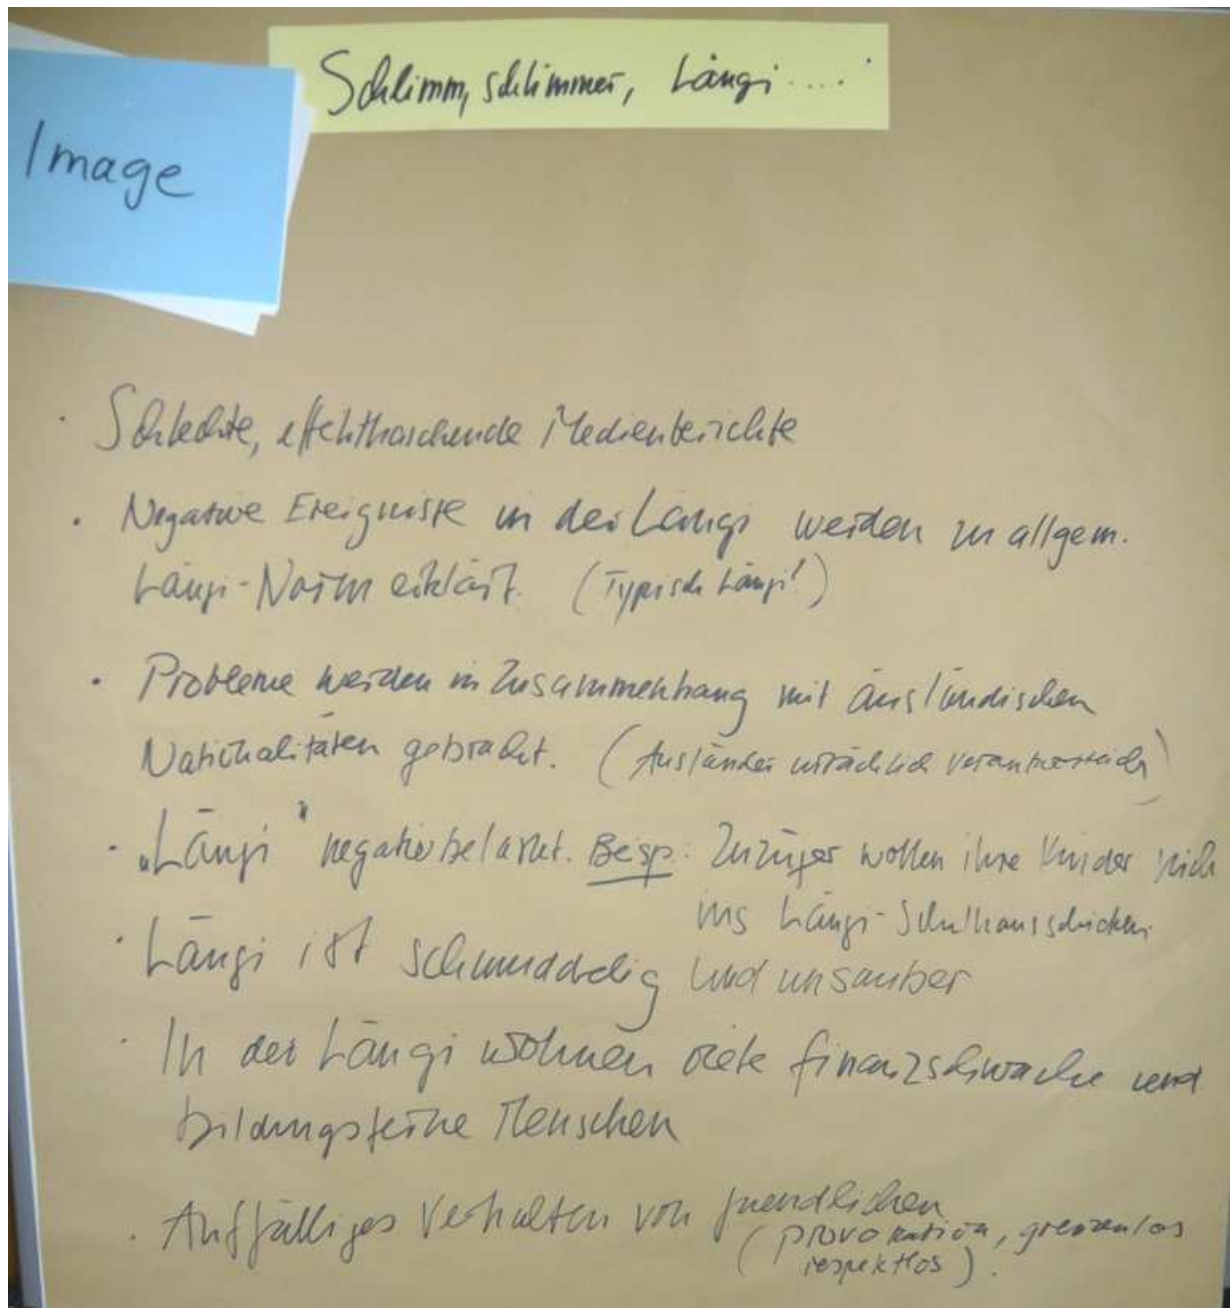 Schlimm, schlimmer, Längi ....
Image
· Schlechte, effekthaschende Medienberichte
· Negative Ereignisse in der Längi werden zu allgem.
Längi-Norm erklärt. (Typisch Längi!)
· Probleme werden in Zusammenhang mit ausländischen
Nationalitäten gebracht. (Ausländer ursächlich verantwortlich)
· „Längi" negativ belastet. Beisp: Zuzüger wollen ihre Kinder nich
ins Längi-Schulhaus schicken
· Längi ist schmuddelig und unsauber
· In der Längi wohnen viele finanzschwache und
bildungsferne Menschen
· Auffälliges Verhalten von Jugendlichen
(Provokation, grenzenlos
respektlos).